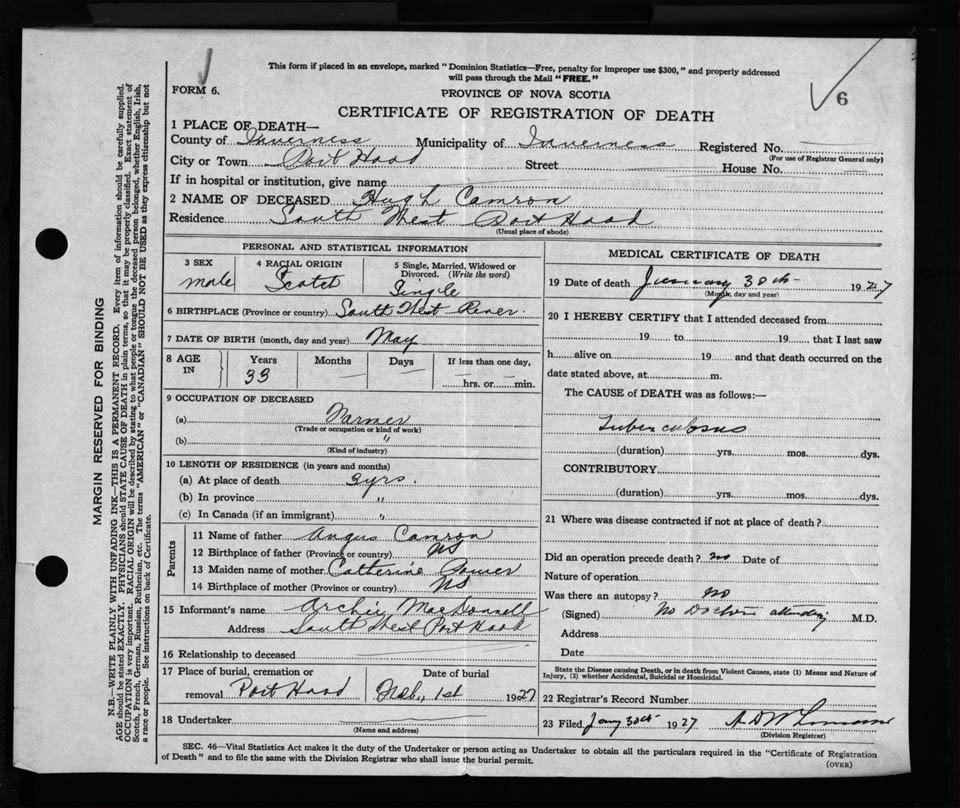 This form if placed in an envelope, marked "Dominion Statistics—Free, penalty for improper use $300," and properly addressed
will pass through the Mail "FREE."
FORM 6.
PROVINCE OF NOVA SCOTIA
6
CERTIFICATE OF REGISTRATION OF DEATH
1 PLACE OF DEATH—
County of Inverness Municipality of Inverness Registered No.
(For use of Registrar General only)
City or Town Port Hood Street House No.
If in hospital or institution, give name
2 NAME OF DECEASED Hugh Camron
Residence South West Port Hood
(Usual place of abode)
PERSONAL AND STATISTICAL INFORMATION
3 SEX 4 RACIAL ORIGIN 5 Single, Married, Widowed or
Divorced. (Write the word)
male Scotch Single
6 BIRTHPLACE (Province or country) South West River.
7 DATE OF BIRTH (month, day and year) May
8 AGE IN Years Months Days If less than one day,
33 hrs. or min.
9 OCCUPATION OF DECEASED
(a) Farmer
(Trade or occupation or kind of work)
(b) "
(Kind of industry)
10 LENGTH OF RESIDENCE (in years and months)
(a) At place of death 3 yrs.
(b) In province "
(c) In Canada (if an immigrant) "
Parents
11 Name of father Angus Camron
12 Birthplace of father (Province or country) NS
13 Maiden name of mother Catherine
14 Birthplace of mother (Province or country) NS
15 Informant's name Archie MacDonnell
Address South West Port Hood
16 Relationship to deceased
17 Place of burial, cremation or Date of burial
removal Port Hood Feb., 1st 1927
18 Undertaker
(Name and address)
MEDICAL CERTIFICATE OF DEATH
19 Date of death January 30th 1927
(Month, day and year)
20 I HEREBY CERTIFY that I attended deceased from
19 to 19 that I last saw
h alive on 19 and that death occurred on the
date stated above, at m.
The CAUSE of DEATH was as follows:—
Tuberculosus
(duration) yrs. mos. dys.
CONTRIBUTORY
(duration) yrs. mos. dys.
21 Where was disease contracted if not at place of death?
Did an operation precede death? no Date of
Nature of operation
Was there an autopsy? no
(Signed) No Doctor attending M.D.
Address
Date
State the Disease causing Death, or in death from Violent Causes, state (1) Means and Nature of
Injury, (2) whether Accidental, Suicidal or Homicidal.
22 Registrar's Record Number
23 Filed Jany 30th 1927
(Division Registrar)
SEC. 46—Vital Statistics Act makes it the duty of the Undertaker or person acting as Undertaker to obtain all the particulars required in the "Certificate of Registration
of Death" and to file the same with the Division Registrar who shall issue the burial permit.
(OVER)
MARGIN RESERVED FOR BINDING
N.B.—WRITE PLAINLY WITH UNFADING INK—THIS IS A PERMANENT RECORD. Every item of information should be carefully supplied.
AGE should be stated EXACTLY. PHYSICIANS should STATE CAUSE OF DEATH in plain terms, so that it may be properly classified. Exact statement of
OCCUPATION is very important. RACIAL ORIGIN will be described by stating to what people or tongue the deceased person belonged, whether English, Irish,
Scotch, French, German, Russian, Ruthenian, etc. The terms "AMERICAN" or "CANADIAN" SHOULD NOT BE USED as they express citizenship but not
a race or people. See instructions on back of Certificate.